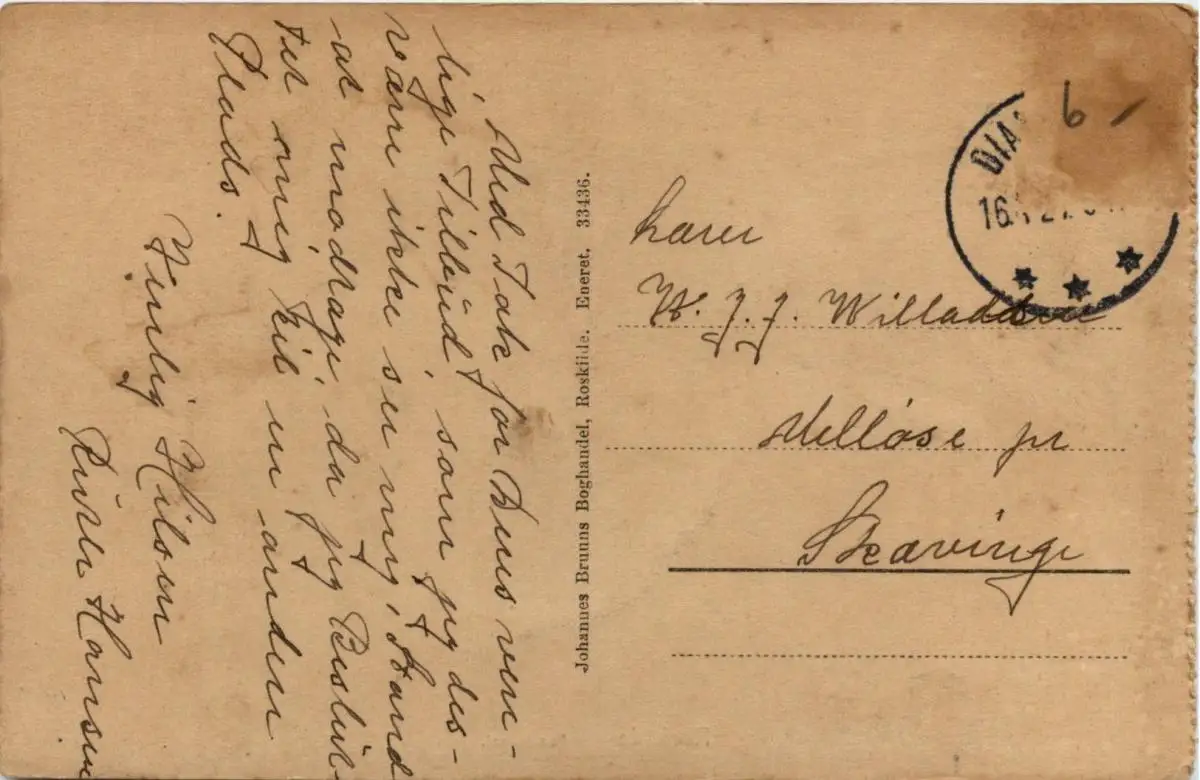 Med Tak for Deres ven-
lige Tilbud, som jeg des-
værre ikke ser mig i Stand
at modtage, da jeg Beslut-
tet mig til en anden
Plads.
Venlig Hilsen
Peder Hansen
Johannes Bruuns Boghandel, Roskilde. Eneret. 33436.
6 -
DIA
16
Lærer
W. J. J. Willadsen
Melløse pr
Skævinge